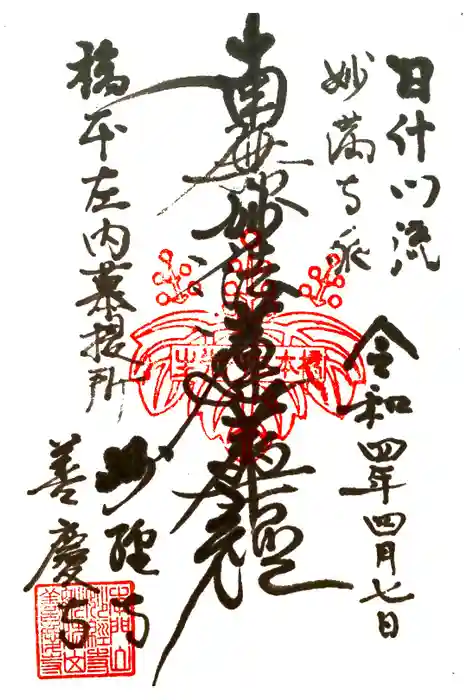 日什門流
妙満寺派
令和四年四月七日
南無妙法蓮華経
橋本左内菩提所
妙経寺
善慶寺